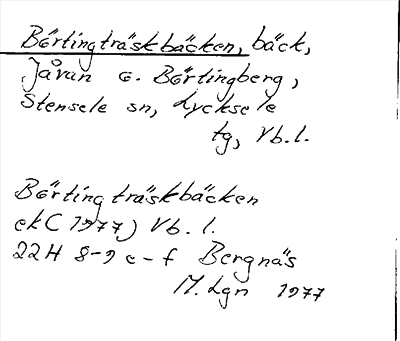 Börtingträskbäcken, bäck,
Jåvan o. Börtingberg,
Stensele sn, Lycksele
tg, Vb.l.
Börtingträskbäcken
ek (1977) Vb.l.
22H 8-9 e-f Bergnäs
M. Lgn 1977